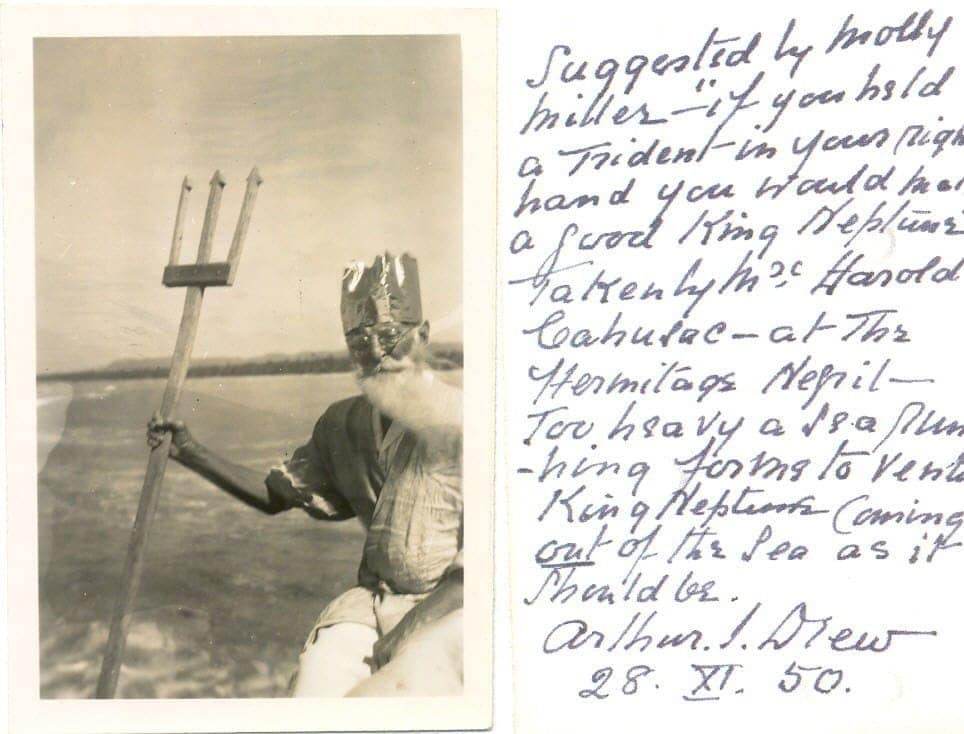 Suggested by Molly
Miller — "if you held
a Trident in your righ
hand you would ma
a good King Neptune
Taken by Mrs. Harold
Cahusac — at The
Hermitage Negril —
Too heavy a sea run
-ning for me to
King Neptune Coming
out of the Sea as it
Should be.
Arthur. J. Drew
28. XI. 50.